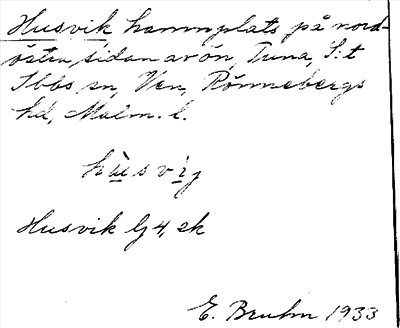 Husvik hamnplats på nord-
östra sidan av ön, Tuna, S:t
Ibbs sn, Ven, Rönnebergs
hd, Malm. l.
Husvik Gj 4, ek
E. Bruhn 1933